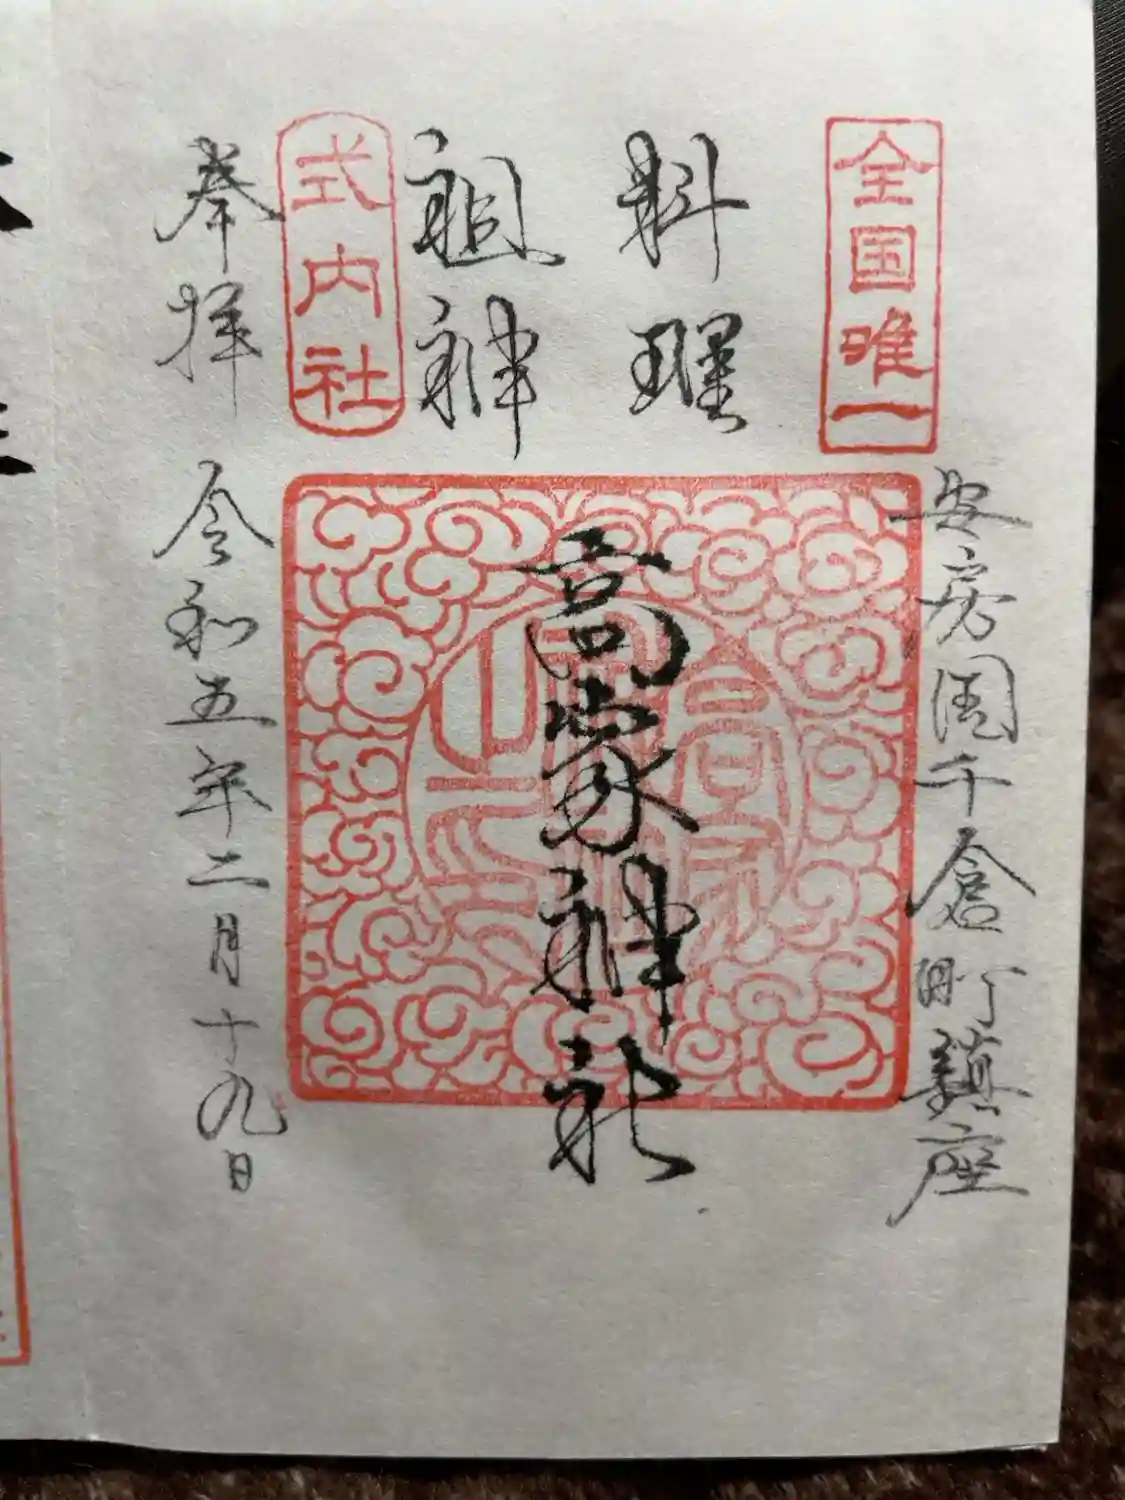 全国唯一
安房国千倉町鎮座
料理
祖神
高家神社
式内社
奉拝
令和五年二月十九日